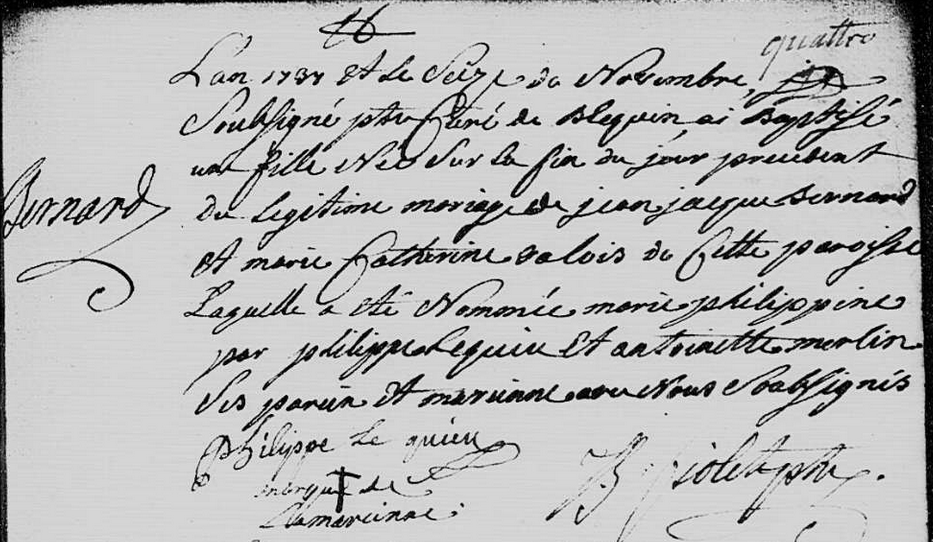 quattre
L'an 1737 et le Seize de Novembre, je
Soubsigné ptre Curé de Blequin ai Baptisé
une fille Née Sur la fin du jour precedent
du Legitime mariage de jean jacque Bernard
Bernard
et marie Catherine valois de Cette paroisse
Laquelle a été Nommée marie philippine
par philippe Lequieu et antoinette merlin
Ses parein et mareinne avec Nous Soubsignés
philippe le quieu
marque de
la mareinne